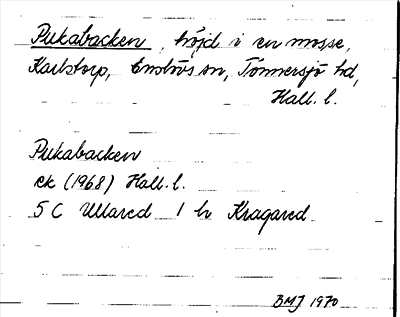 Pukabacken, höjd i en mosse,
Karlstorp, Enslövs sn, Tönnersjö hd,
Hall. l.
Pukabacken
ek (1968) Hall. l.
5 C Ullared 1 h Kragared
BMJ 1970